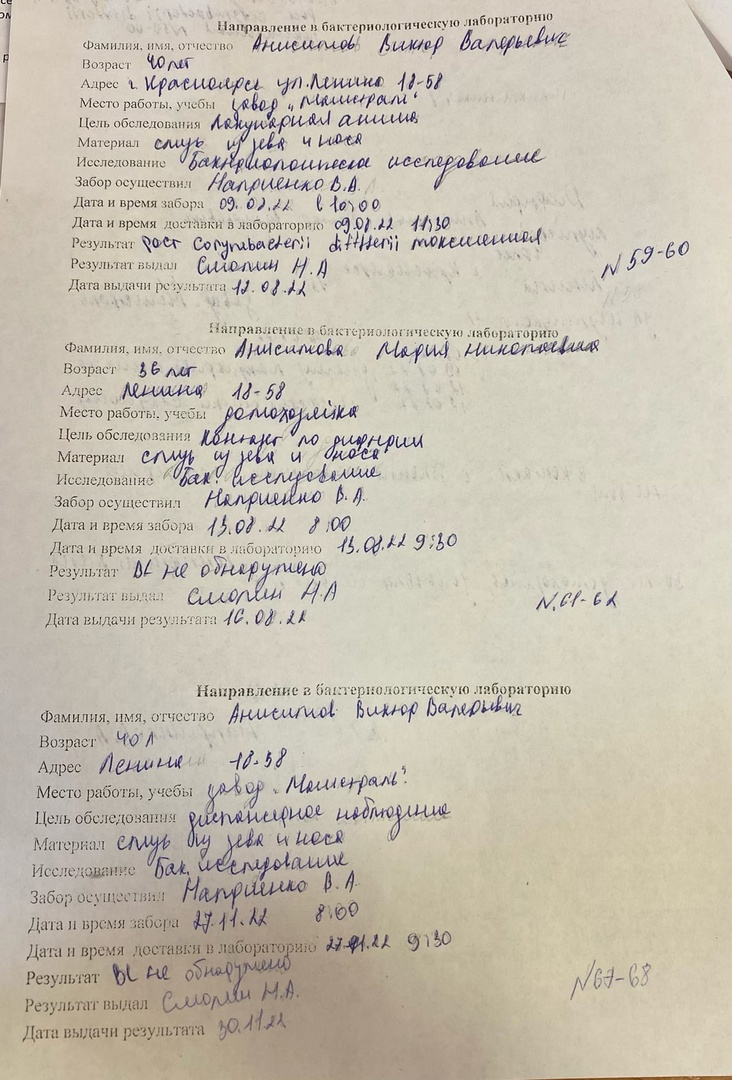 Направление в бактериологическую лабораторию
Фамилия, имя, отчество Анисимов Виктор Валерьевич
Возраст 40 лет
Адрес г. Красноярск ул. Ленина 18-58
Место работы, учебы завод „Магистраль"
Цель обследования Лакунарная ангина
Материал слизь из зева и носа
Исследование Бактериологическое исследование
Забор осуществил Наприенко В.А.
Дата и время забора 09.08.22 в 10:00
Дата и время доставки в лабораторию 09.08.22 11:30
Результат рост Corynebacterii diftterii токсигенная
Результат выдал Смолин Н.А
Дата выдачи результата 12.08.22
N 59-60
Направление в бактериологическую лабораторию
Фамилия, имя, отчество Анисимова Мария Николаевна
Возраст 36 лет
Адрес Ленина 18-58
Место работы, учебы домохозяйка
Цель обследования контакт по дифтерии
Материал слизь из зева и носа
Исследование Бак. исследование
Забор осуществил Наприенко В.А.
Дата и время забора 13.08.22 8:00
Дата и время доставки в лабораторию 13.08.22 9:30
Результат BL не обнаружено
Результат выдал Смолин Н.А
Дата выдачи результата 16.08.22
N.61-62
Направление в бактериологическую лабораторию
Фамилия, имя, отчество Анисимов Виктор Валерьевич
Возраст 40 л
Адрес Ленина 18-58
Место работы, учебы завод „Магистраль".
Цель обследования диспансерное наблюдение
Материал слизь из зева и носа
Исследование Бак. исследование
Забор осуществил Наприенко В.А.
Дата и время забора 27.11.22 8:00
Дата и время доставки в лабораторию 27.11.22 9:30
Результат BL не обнаружено
Результат выдал Смолин Н.А.
Дата выдачи результата 30.11.22
N67-68